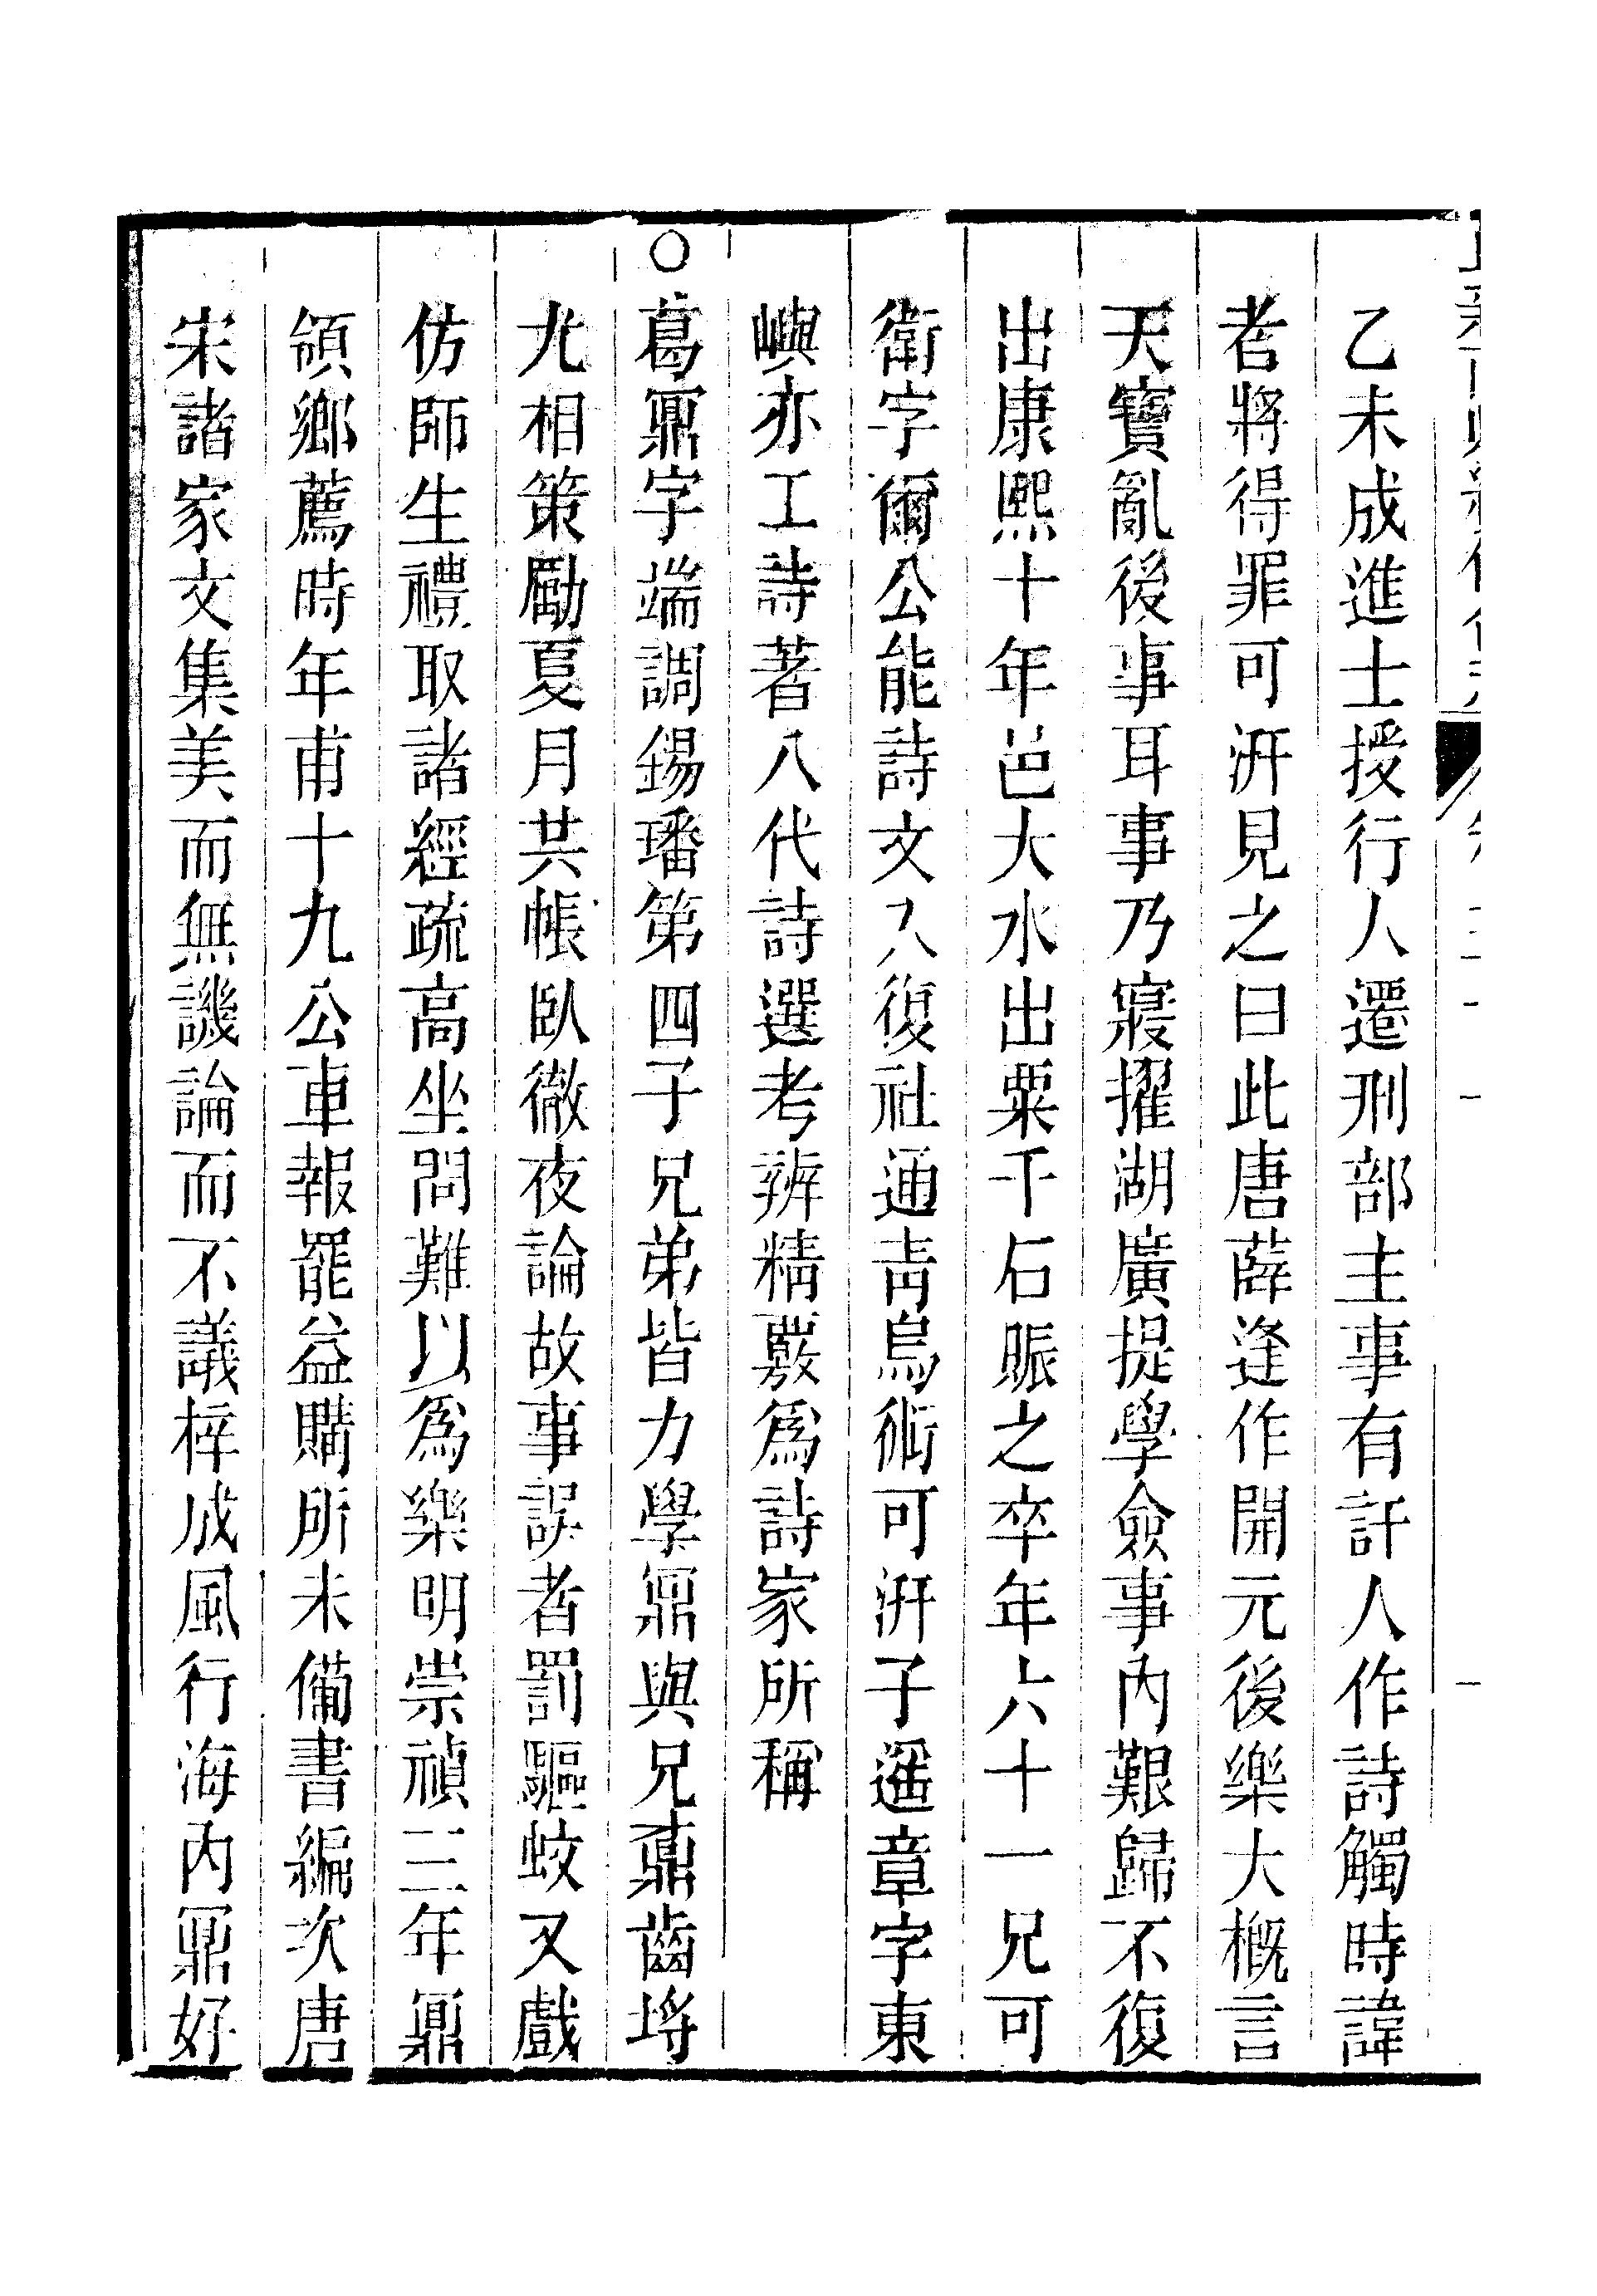 乙未成進士授行人遷刑部主事有訐人作詩觸時諱
者將得罪可汧見之曰此唐薛逢作開元後樂大槪言
天寶亂後事耳事乃寢擢湖廣提學僉事內艱歸不復
出康熙十年邑大水出粟千石賑之卒年六十一兄可
衛字爾公能詩文入復社通靑烏術可汧子遥章字東
嶼亦工詩著八代詩選考辨精覈爲詩家所稱
○葛鼏字端調錫璠第四子兄弟皆力學鼏與兄鼒齒埒
尤相策勵夏月共帳臥徹夜論故事誤者罰驅蚊又戲
仿師生禮取諸經疏高坐問難以爲樂明崇禎三年鼏
領鄉薦時年甫十九公車報罷益購所未備書編次唐
宋諸家文集美而無譏論而不議梓成風行海內鼏好